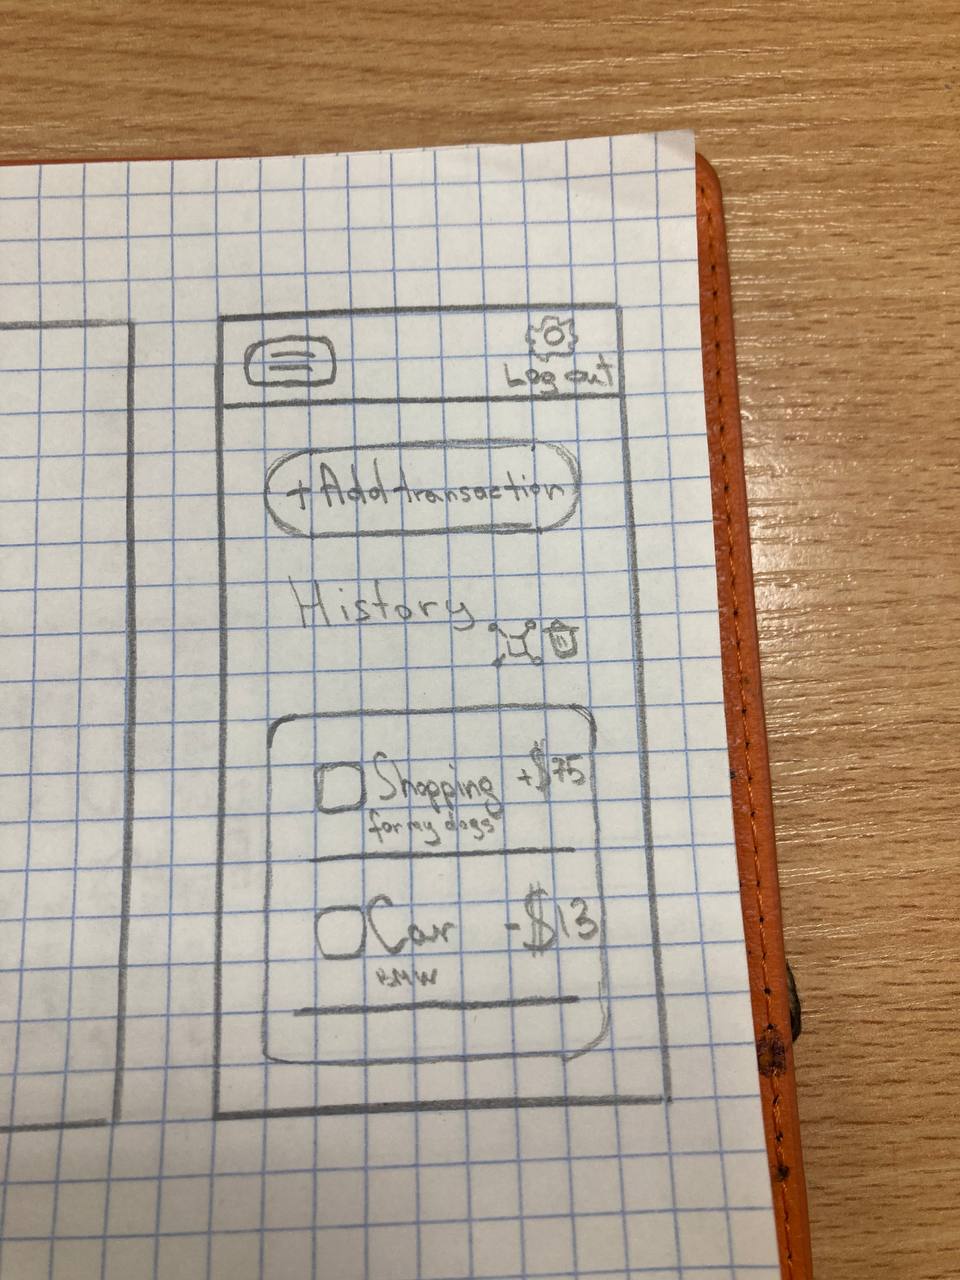 Log out
+ Add transaction
History
Shopping +$75
for my dogs
Car -$13
BMW